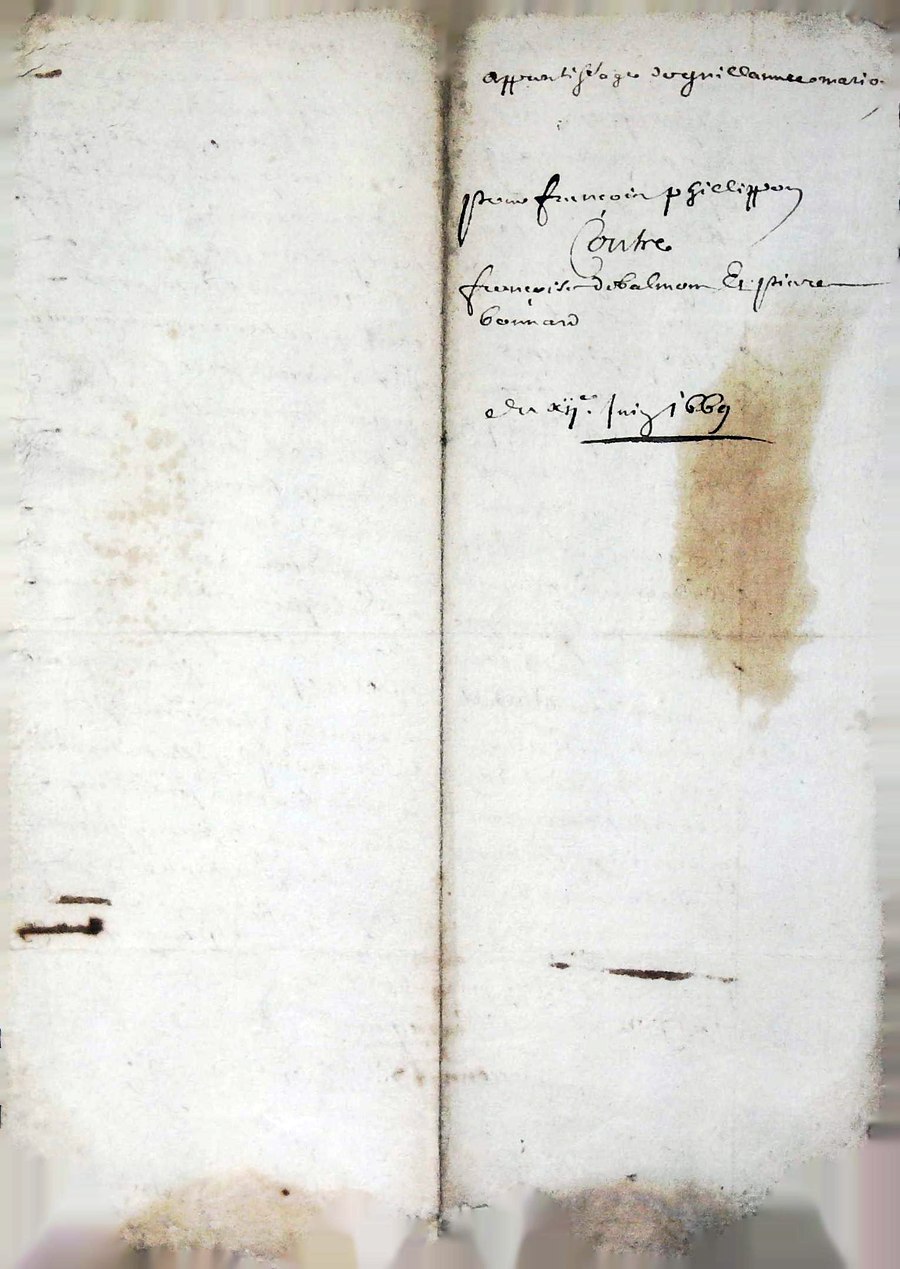 apprentissage de guillaume marie
pour françois phillippon
Contre
françoise debalmon Et pierre
bonnard
du xije. Juing 1669